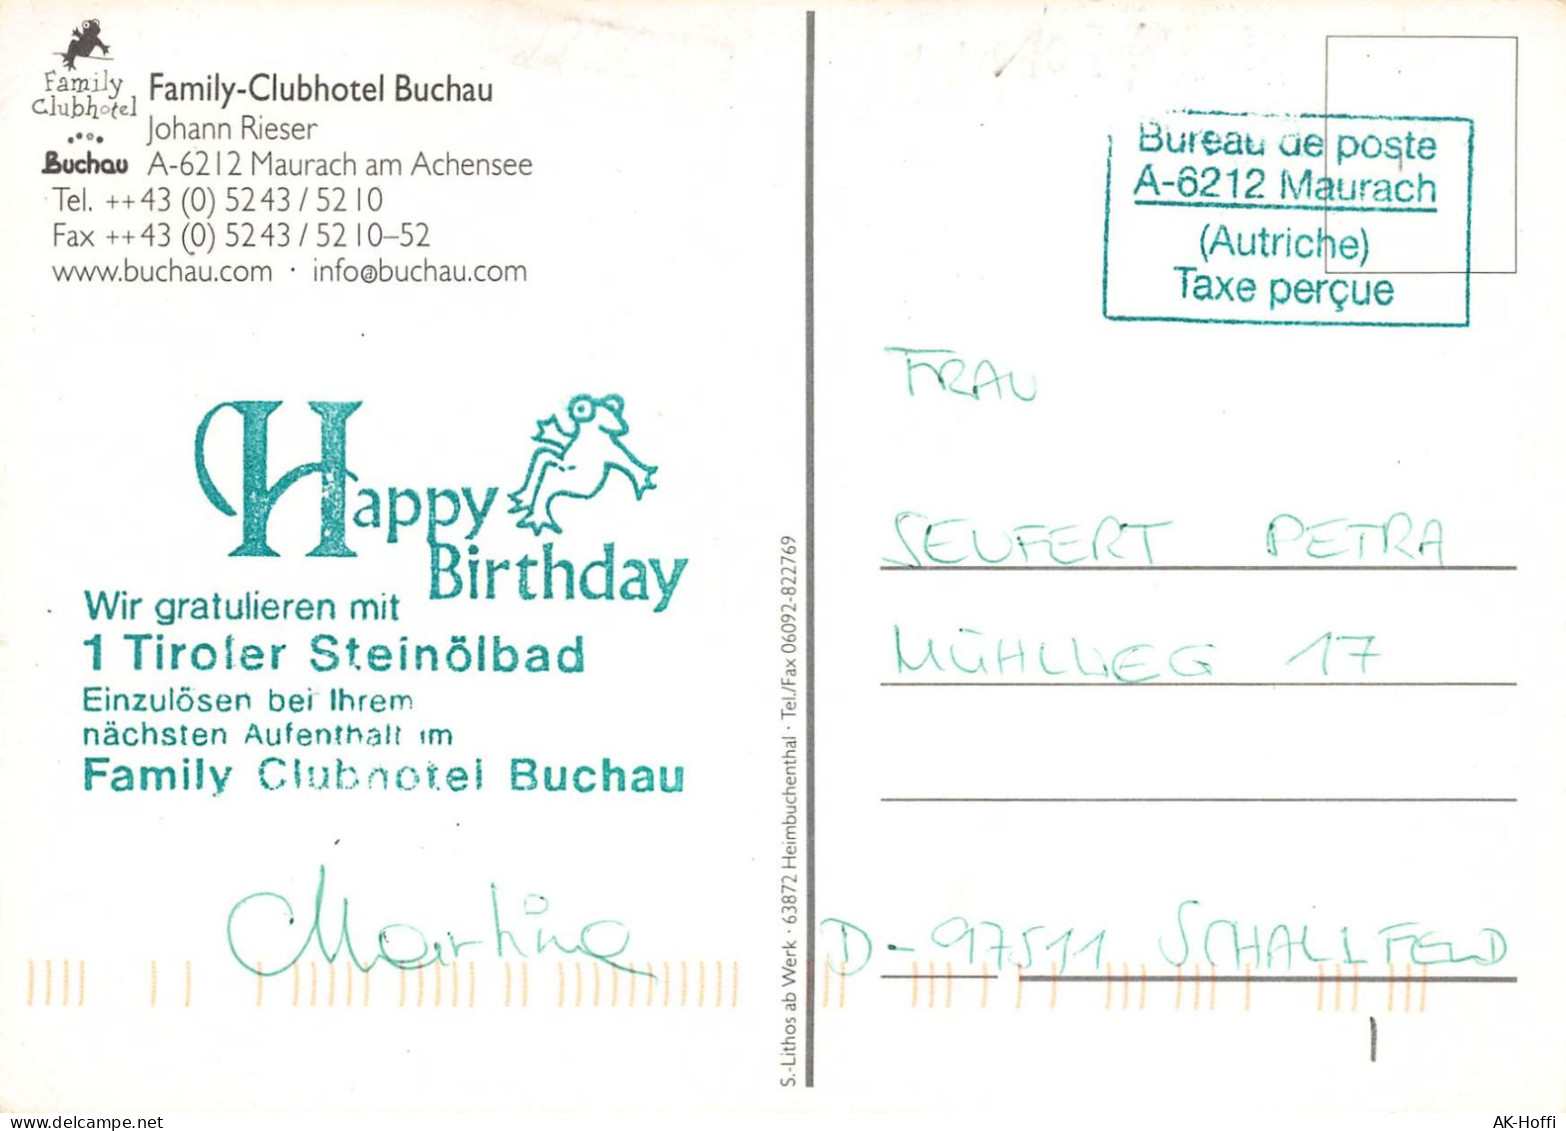 Family
Clubhotel
Buchau
Family-Clubhotel Buchau
Johann Rieser
A-6212 Maurach am Achensee
Tel. ++43 (0) 5243 / 5210
Fax ++43 (0) 5243 / 5210–52
www.buchau.com · info@buchau.com
Happy
Birthday
Wir gratulieren mit
1 Tiroler Steinölbad
Einzulösen bei Ihrem
nächsten Aufenthalt im
Family Clubhotel Buchau
Martina
S.-Lithos ab Werk · 63872 Heimbuchenthal · Tel./Fax 06092-822769
Bureau de poste
A-6212 Maurach
(Autriche)
Taxe perçue
FRAU
SEUFERT PETRA
MÜHLWEG 17
D-97511 SCHALLFELD
AK-Hoffi